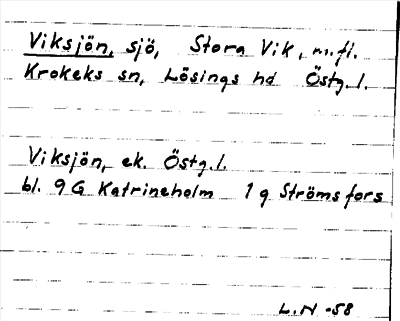 Viksjön, sjö, Stora Vik, m.fl.
Krokeks sn, Lösings hd Östg.l.
Viksjön, ek. Östg.l.
bl. 9 G Katrineholm 1 g Strömsfors
L.N -58